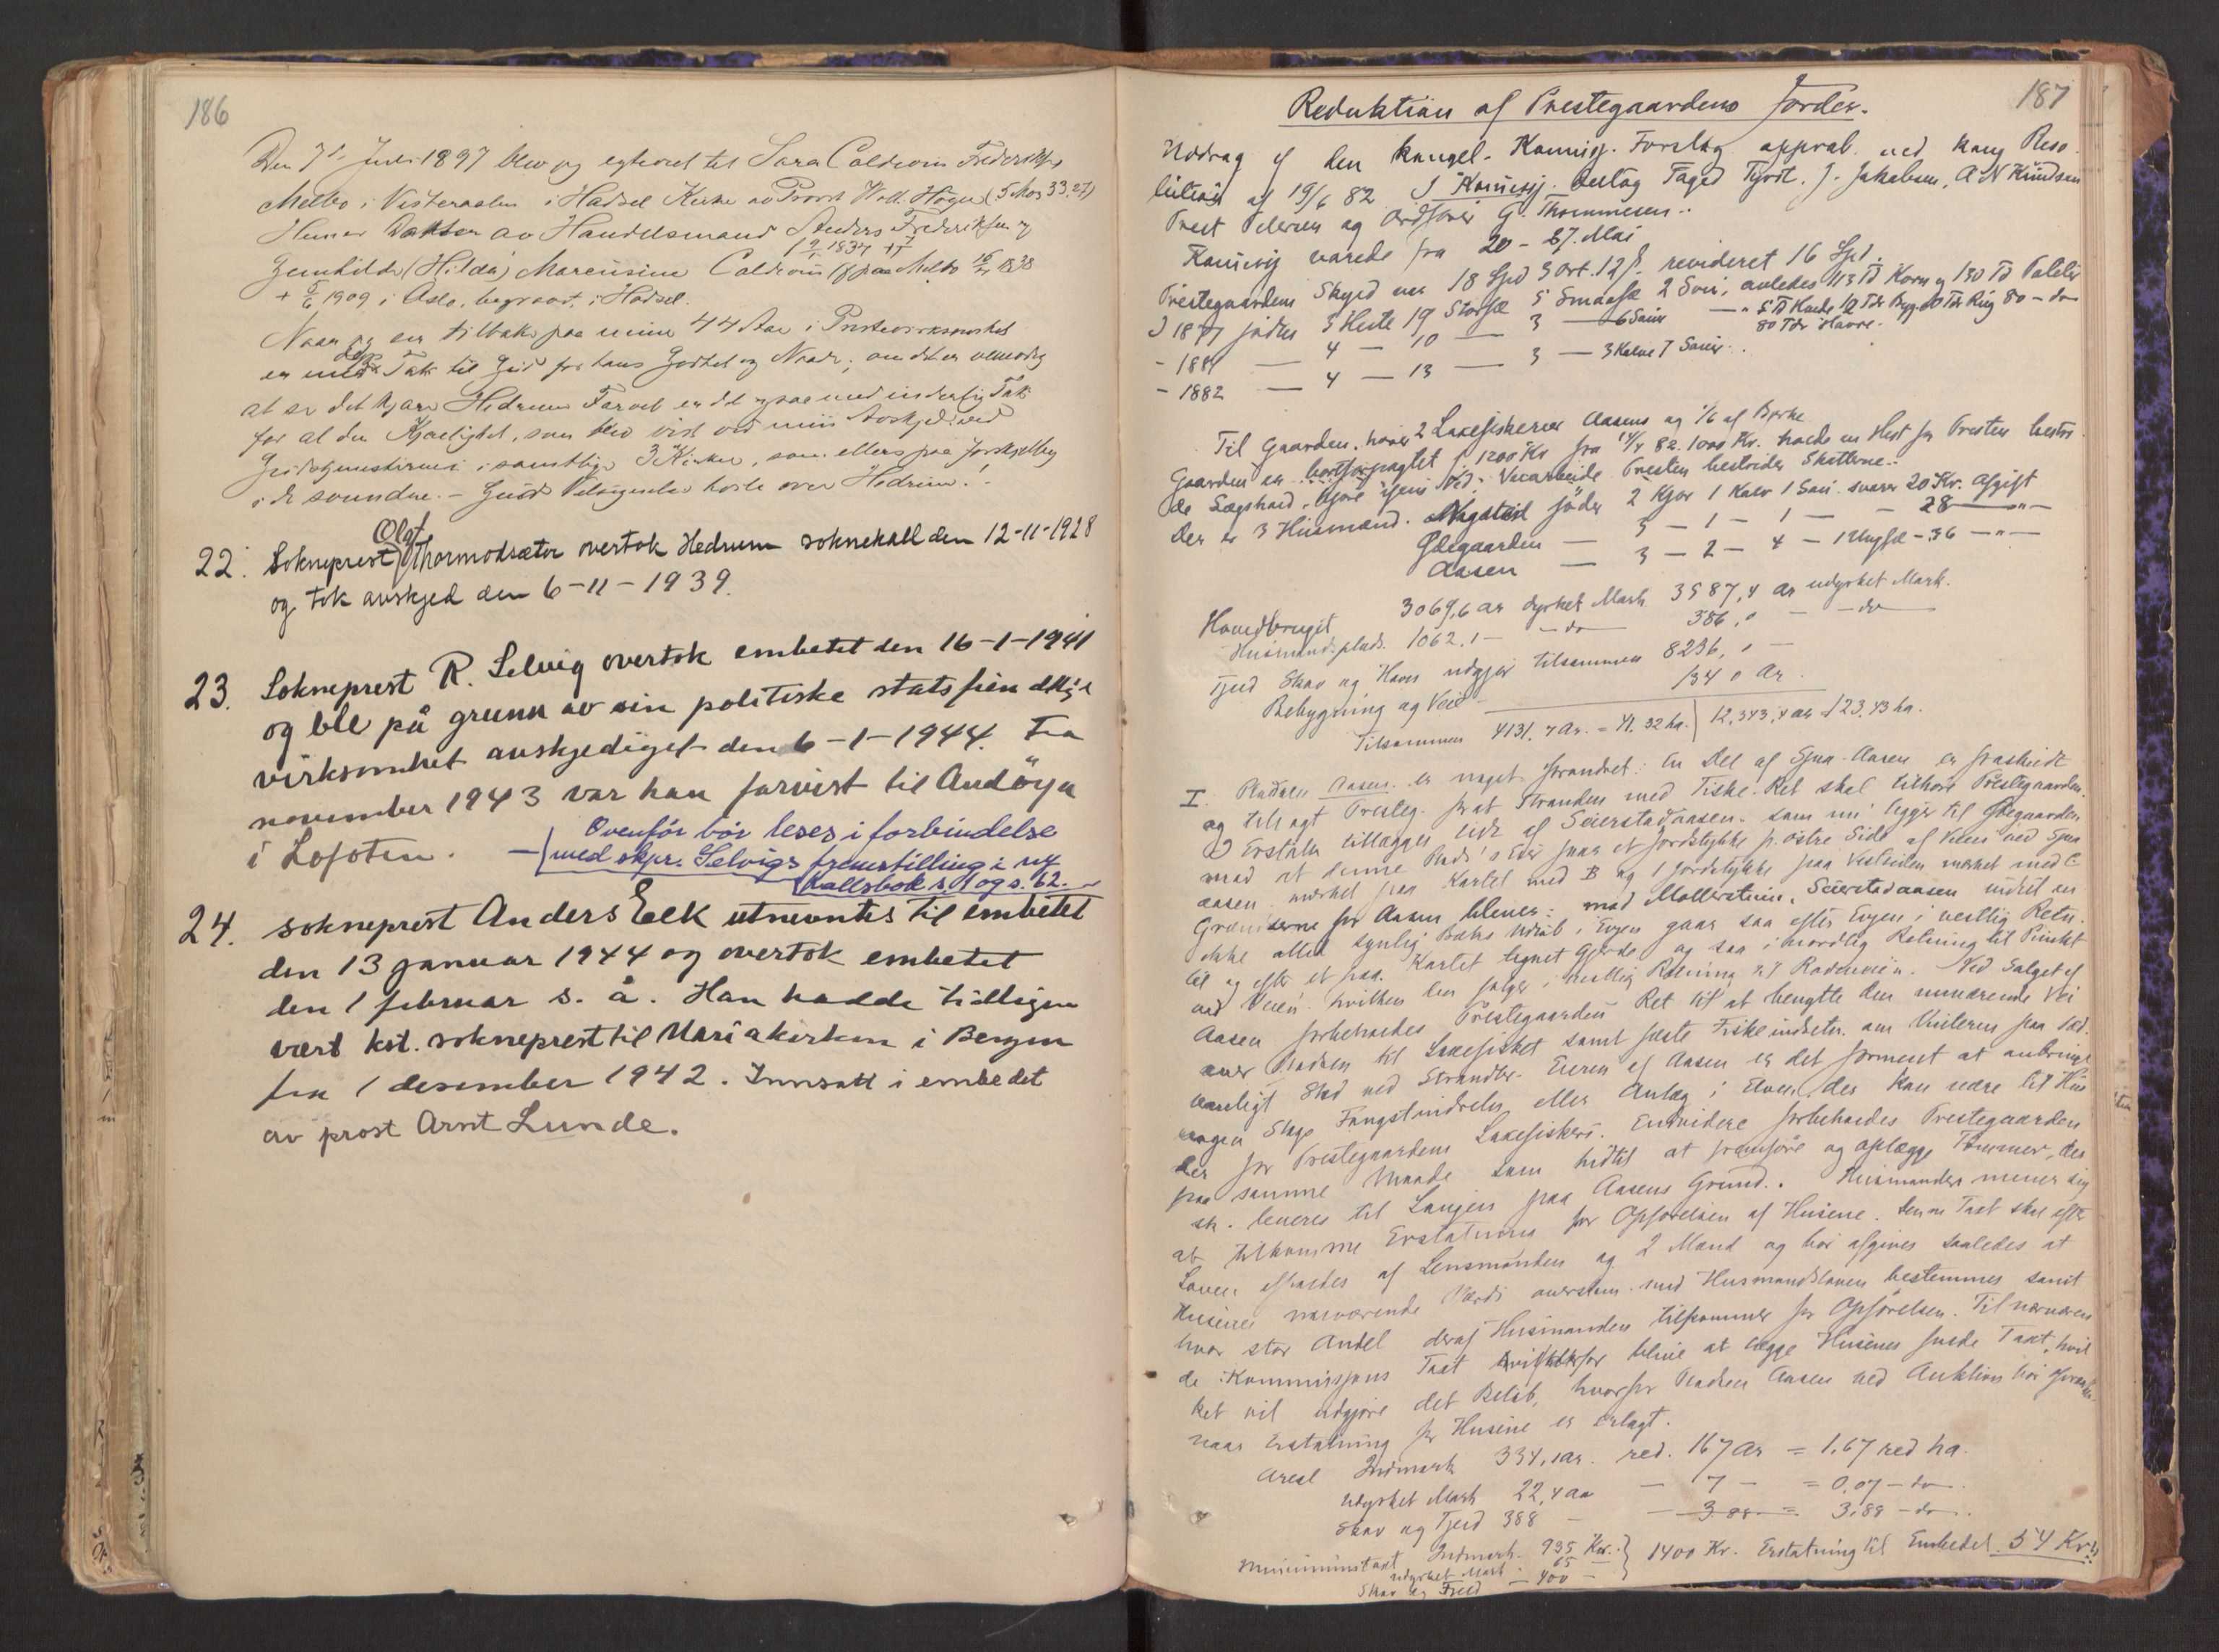 186
Den 7de Juli 1897 blev jeg egteviet til Sara Caldrom Frederiksen
Melbo i Vesteraalen i Hadsel Kirke av Provst Voll. Høgn (5 Mos 33.27)
Hun er Datter av Handelsmand Anders Frederiksen og
Gunhilde (Hilda) Marensine Caldrom
+ 5/6 1909 i Oslo, begravet i Hadsel.
Naar jeg ser tilbake paa mine 44 Aar i Prestevirksomhet
er med Tak til Gud for hans Godhet og Naade; om det er vemodig
at se det kjære Hedrum Farvel er det ogsaa med inderlig Tak
for al den Kjærlighet, som blev vist ved min Avskjed ved
Gudstjenesterne i samtlige 3 Kirker, som ellers paa forskjellig
i de svundne. – Guds Velsignelse hvile over Hedrum!
22. Sokneprest Olaf Thormodsæter overtok Hedrum soknekall den 12-11-1928
og tok avskjed den 6-11-1939.
23. Sokneprest R. Selvig overtok embetet den 16-1-1941
og ble på grunn av sin politiske statsfiendtlige
virksomhet avskjediget den 6-1-1944. Fra
november 1943 var han forvist til Andöya
i Lofoten.
Ovenfor bör leses i forbindelse
med skpr. Selvigs fremstilling i ny
kallsbok s. 1 og s. 62.
24. sokneprest Anders Eek utnevntes til embetet
den 13 januar 1944 og overtok embetet
den 1 februar s. å. Han hadde tidligere
vært kst. sokneprest til Mariakirken i Bergen
fra 1 desember 1942. Innsatt i embedet
av prost Arnt Lunde.
187
Reduktion af Prestegaardens Jorder.
Uddrag af den kongel. Kommisj. Forslag approb. ved kong Reso
lution af 19/6 82 I Kommisj. deltog Foged Tqvdt. J. Jakobsen, A N Knudsen
Prest Pedersen og Ordfører G. Thommesen.
Kommisj varede fra 20-27. Mai
Prestegaardens Skyld var 18 Spd 3 Ort. 12 ß. revideret 16 Spd.
I 1877 födes 3 Heste 19 Storfæ 5 Smaafæ 2 Svin, avledes 113 Td Korn og 130 Td Poteter
- 1881 — 4 — 10 — 3 — 6 Svin
80 Tdr Havre.
- 1882 — 4 — 13 — 3 — 3 Kalve 7 Sauer.
Til Gaarden hører 2 Laxefiskerier Aasens og 1/6 af Borke
Gaarden er bortforpagtet f 1200 Kr fra 14/4 82. 1000 Kr. holde en Hest for Presten
Presten bestrider Skatterne.
Der er 3 Husmænd. Nagsteil föder 2 Kjør 1 Kalv 1 Sau. svarer 20 Kr. Afgift
Ödegaarden — 3 — 1 — 1 — 28 —"—
Aasen — 3 — 2 — 4 — 1 Ungfæ - 36 —"—
Hovedbruget 3069,6 ar dyrket Mark 3587,4 ar udyrket Mark.
Husmands.plads. 1062,1 — do — 386,0 — do
Fjeld Skov og Havn udgjør tilsammen 8236,0 —
Bebygning og Vei 134 0 Ar.
Tilsammen 4131,7 Ar. = 41.32 ha. 12,343,4 ar = 123.43 ha.
I. Pladsen Aasen er noget forandret: En Del af Aasen er fraskilt
og tillagt Presteg. forat Stranden med Fiske-Ret skal tilhöre Prestegaarden.
I Erstatn tillægges lidt af Seierstadaasen som nu ligger til Ödegaarden
mod at denne faar et Jordstykke p. östre Side af Veien ved
aasen mærket paa Kartet med B og 1 Jordstykke paa Vestsiden mærket med C.
Grændserne for Aasen bliver: mod Mollerstein, Seierstadaasen
til og efter et paa Kartet tegnet Gjerde og saa i nordlig Retning til Punkt
ved Veien hvilken den følger i vestlig Retning til Ved Salget af
Aasen forbeholdes Prestegaarden Ret til at benytte den nuværende Vei
over Pladsen til Laxefisket samt
vanligt Sted ved Strandbr. Eieren af Aasen er det formeent at anbringe
nogen Slags Fangstindretn. eller Anlæg i Elven, der kan være til Hin
der for Prestegaardens Laxefiskeri. Endvidere forbeholdes Prestegaarden
paa samme Maade som hidtil at fremføre og oplægge Tömmer, der
sk. leveres til Laugen paa Aasens Grund. Husmanden mener sig
at tilkomme Erstatning for Opførelsen af Husene. Denne Taxt skal efter
Loven afholdes af Lensmanden og 2 Mænd og bör afgives saaledes at
Husenes nærværende Værdi overstem. med Husmandsloven bestemmes samt
hvor stor Andel deraf Husmanden tilkommer for Opførelsen. Til nærværen
de Kommissions Taxt blive at lægge Husenes Taxt, hvil
ket vil udgjøre det Beløb, hvorfor Pladsen Aasen ved Auktion bör
naar Erstatning for Husene er erlagt.
Areal Indmark 334,1 ar. red. 167 ar = 1.67 red ha.
Udyrket Mark 22,4 ar — 7 — = 0,07 — do
Skov og Fjeld 388 — 3 88 = 3,88 — do.
Minimumstaxt Indmark. 935 Kr. } 1400 Kr. Erstatning til Embedet 54 Kr.
udyrket Mark 65
Skov og Fjeld — 400 —